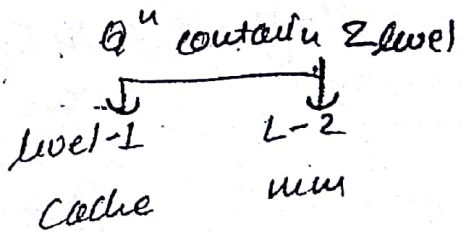 Qⁿ contain 2 level
level-1 L-2
Cache mm